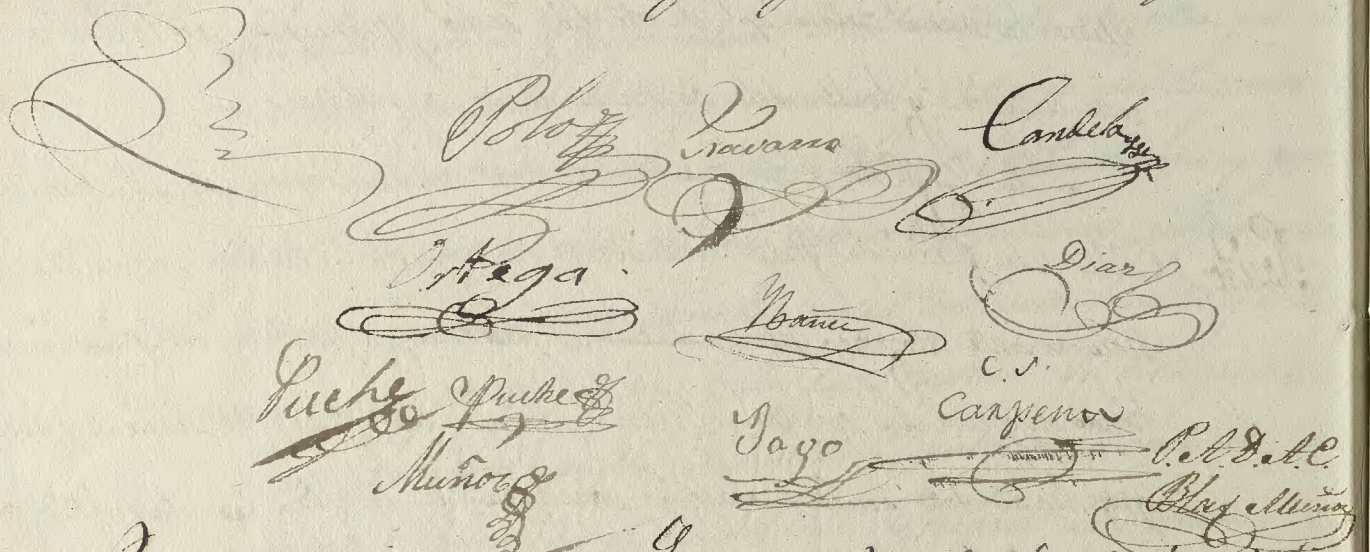 Polo Navarro Candela
Ortega Ybañez Diaz
Puche Puche C. S.
Carpena
Muñoz P. A. D. A. C.
Blas Muñoz